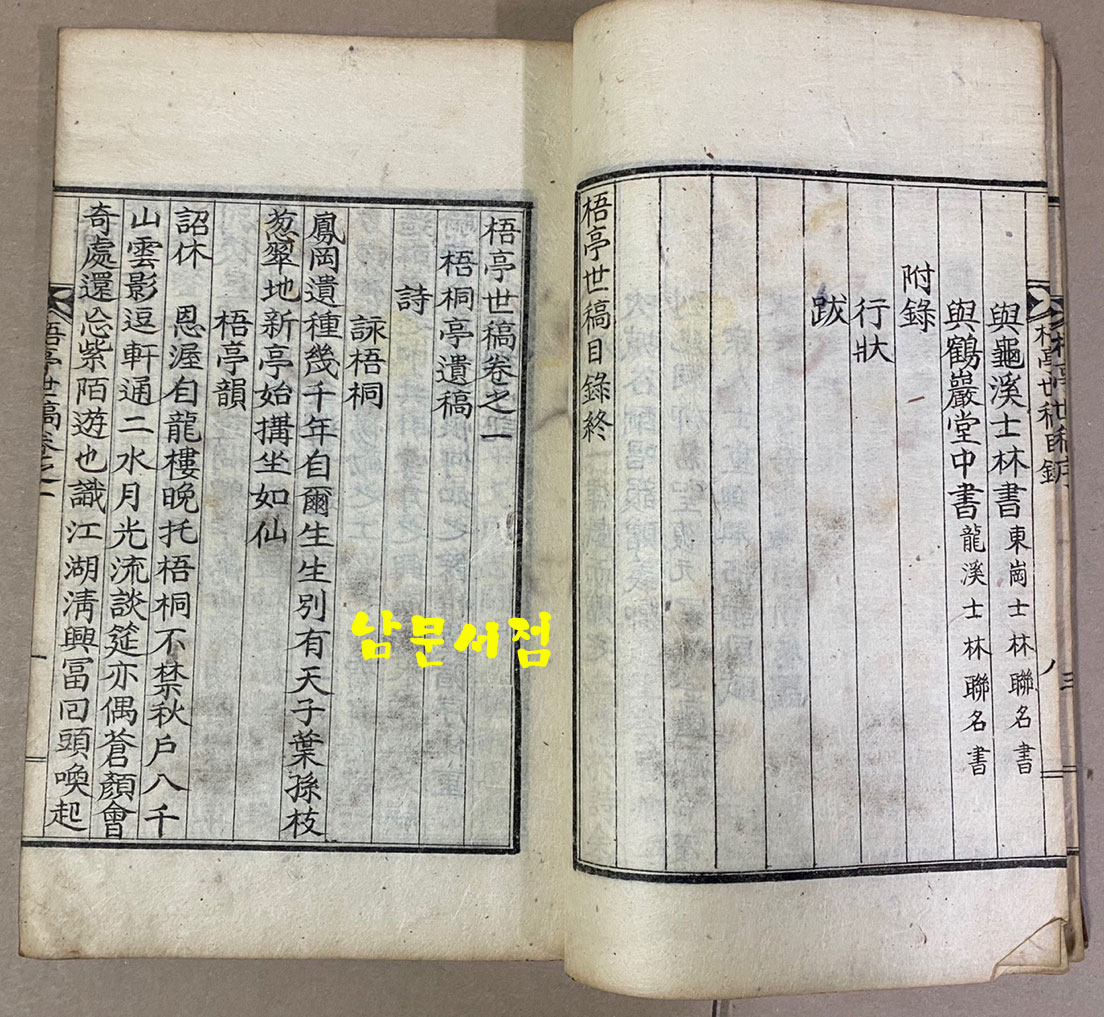 與龜溪士林書 東崗士林聯名書
與鶴巖堂中書 龍溪士林聯名書
附錄
行狀
跋
梧亭世稿目錄終
梧亭世稿卷之一
梧桐亭遺稿
詩
詠梧桐
鳳岡遺種幾千年自爾生生別有天子葉孫枝
葱翠地新亭始搆坐如仙
梧亭韻
詔休 恩渥自龍樓晩托梧桐不禁秋戶八千
山雲影逗軒通二水月光流談筵亦偶蒼顏會
奇處還忩紫陌遊也識江湖淸興冨回頭喚起
梧亭世稿卷之一
一
남문서점